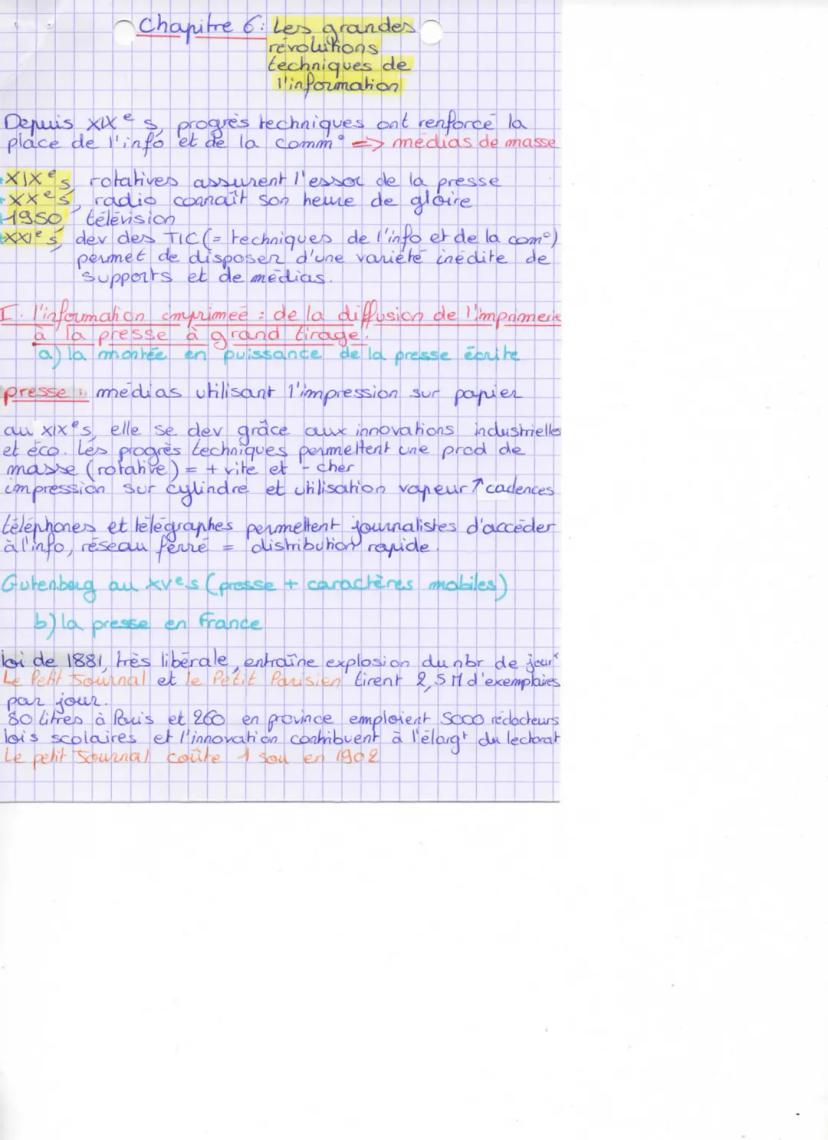 Chapitre 6: Les grandes
révolutions
techniques de
l'information
Depuis XIXe s, progrès techniques ont renforcé la
place de l'info et de la comm° => médias de masse
XIXe s, rotatives assurent l'essor de la presse
XXe s, radio connaît son heure de gloire
1950, télévision
XXIe s, dev des TIC (= techniques de l'info et de la com°)
permet de disposer d'une variété inédite de
supports et de médias.
I. l'information imprimée : de la diffusion de l'imprimerie
à la presse à grand tirage.
a) la montée en puissance de la presse écrite
presse : médias utilisant l'impression sur papier
au XIXe s, elle se dev grâce aux innovations industrielles
et éco. Les progrès techniques permettent une prod de
masse (rotative) = + vite et - cher
impression sur cylindre et utilisation vapeur ↗ cadences
téléphones et télégraphes permettent journalistes d'accéder
à l'info, réseau ferré = distribution rapide.
Gutenberg au XVe s (presse + caractères mobiles)
b) la presse en France
loi de 1881, très libérale, entraîne explosion du nbr de jourx
Le Petit Journal et le Petit Parisien tirent 2,5M d'exemplaires
par jour.
80 titres à Paris et 260 en province emploient 5000 rédacteurs
lois scolaires et l'innovation contribuent à l'élargt du lectorat
Le petit Journal coûte 1 sou en 1902